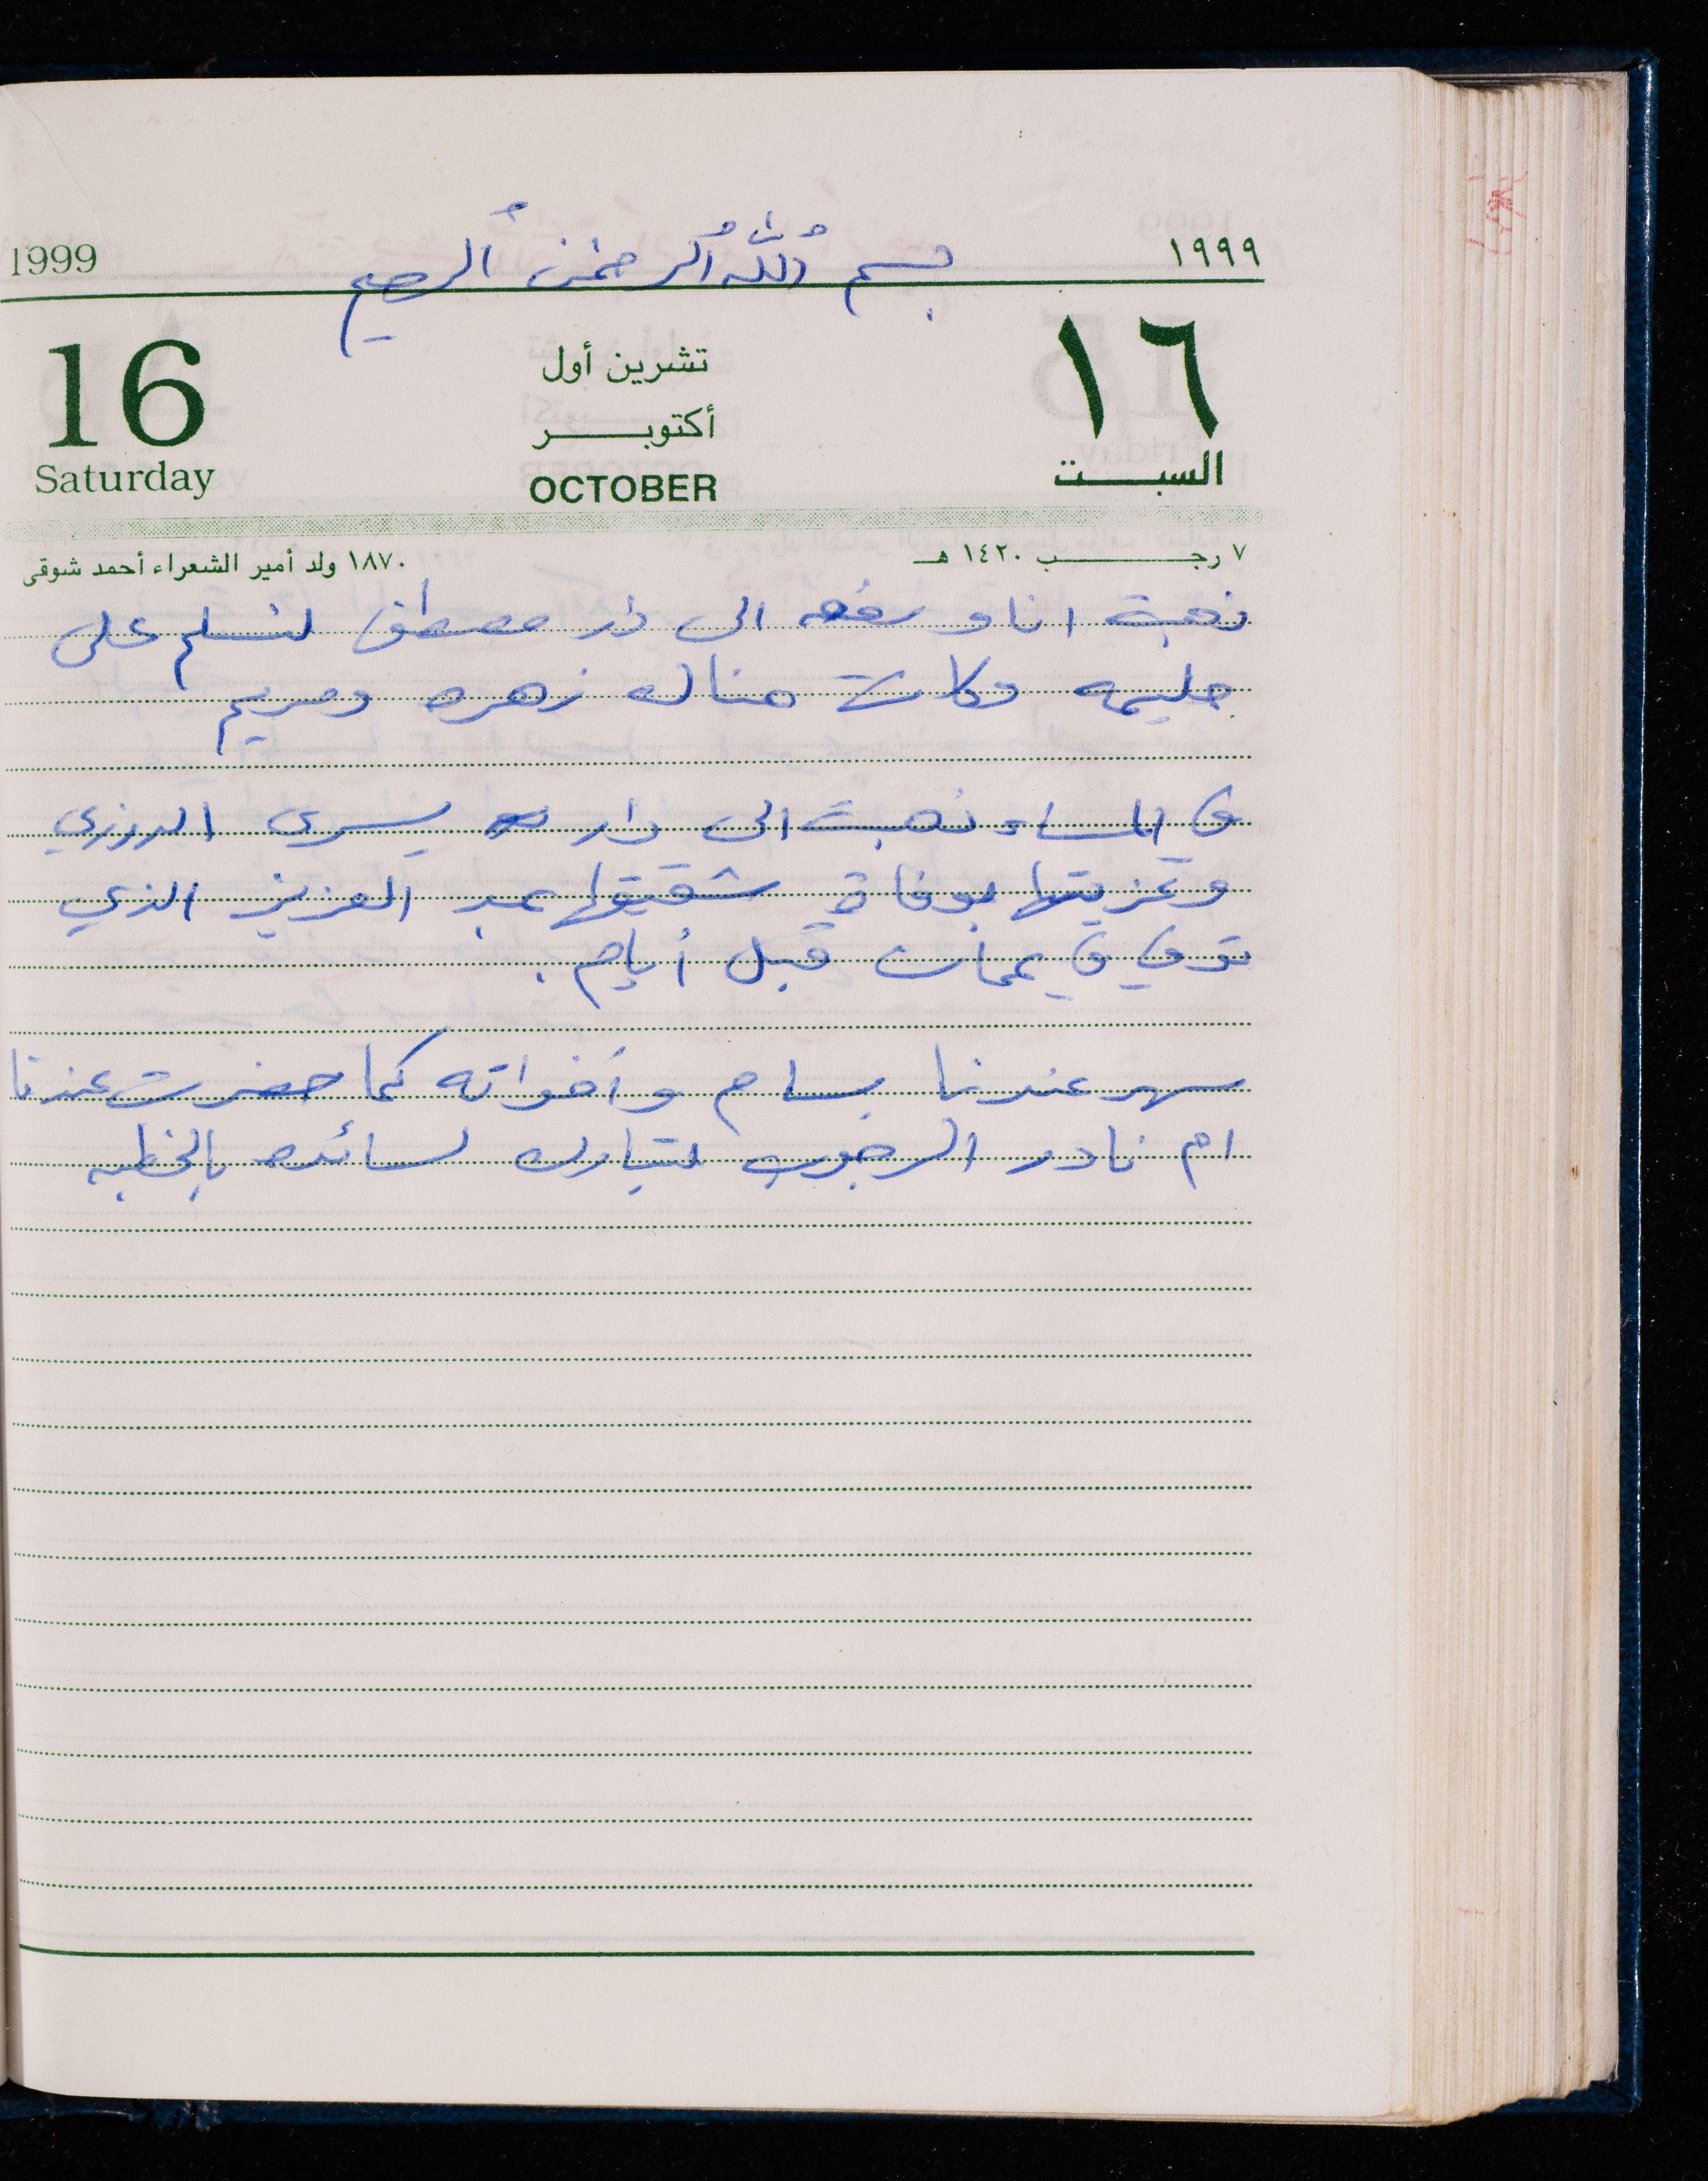 بسم الله الرحمن الرحيم
1999 ١٩٩٩
16 تشرين أول ١٦
أكتوبر
Saturday OCTOBER السبت
٧ رجب ١٤٢٠ هـ ١٨٧٠ ولد أمير الشعراء أحمد شوقى
ذهبت انا و الى دار مصطفى لنسلم على
حليمه وكانت هناك زهره ومريم
في المساء ذهبت الى دار يسرى الدوزري
وتعزيتها بوفاة شقيقها عبد العزيز الذي
توفي في عمان قبل أيام.
سهر عندنا بسام وأخواته كما حضرت عندنا
ام نادر الرجوب لتبارك لسائده بالخطبه